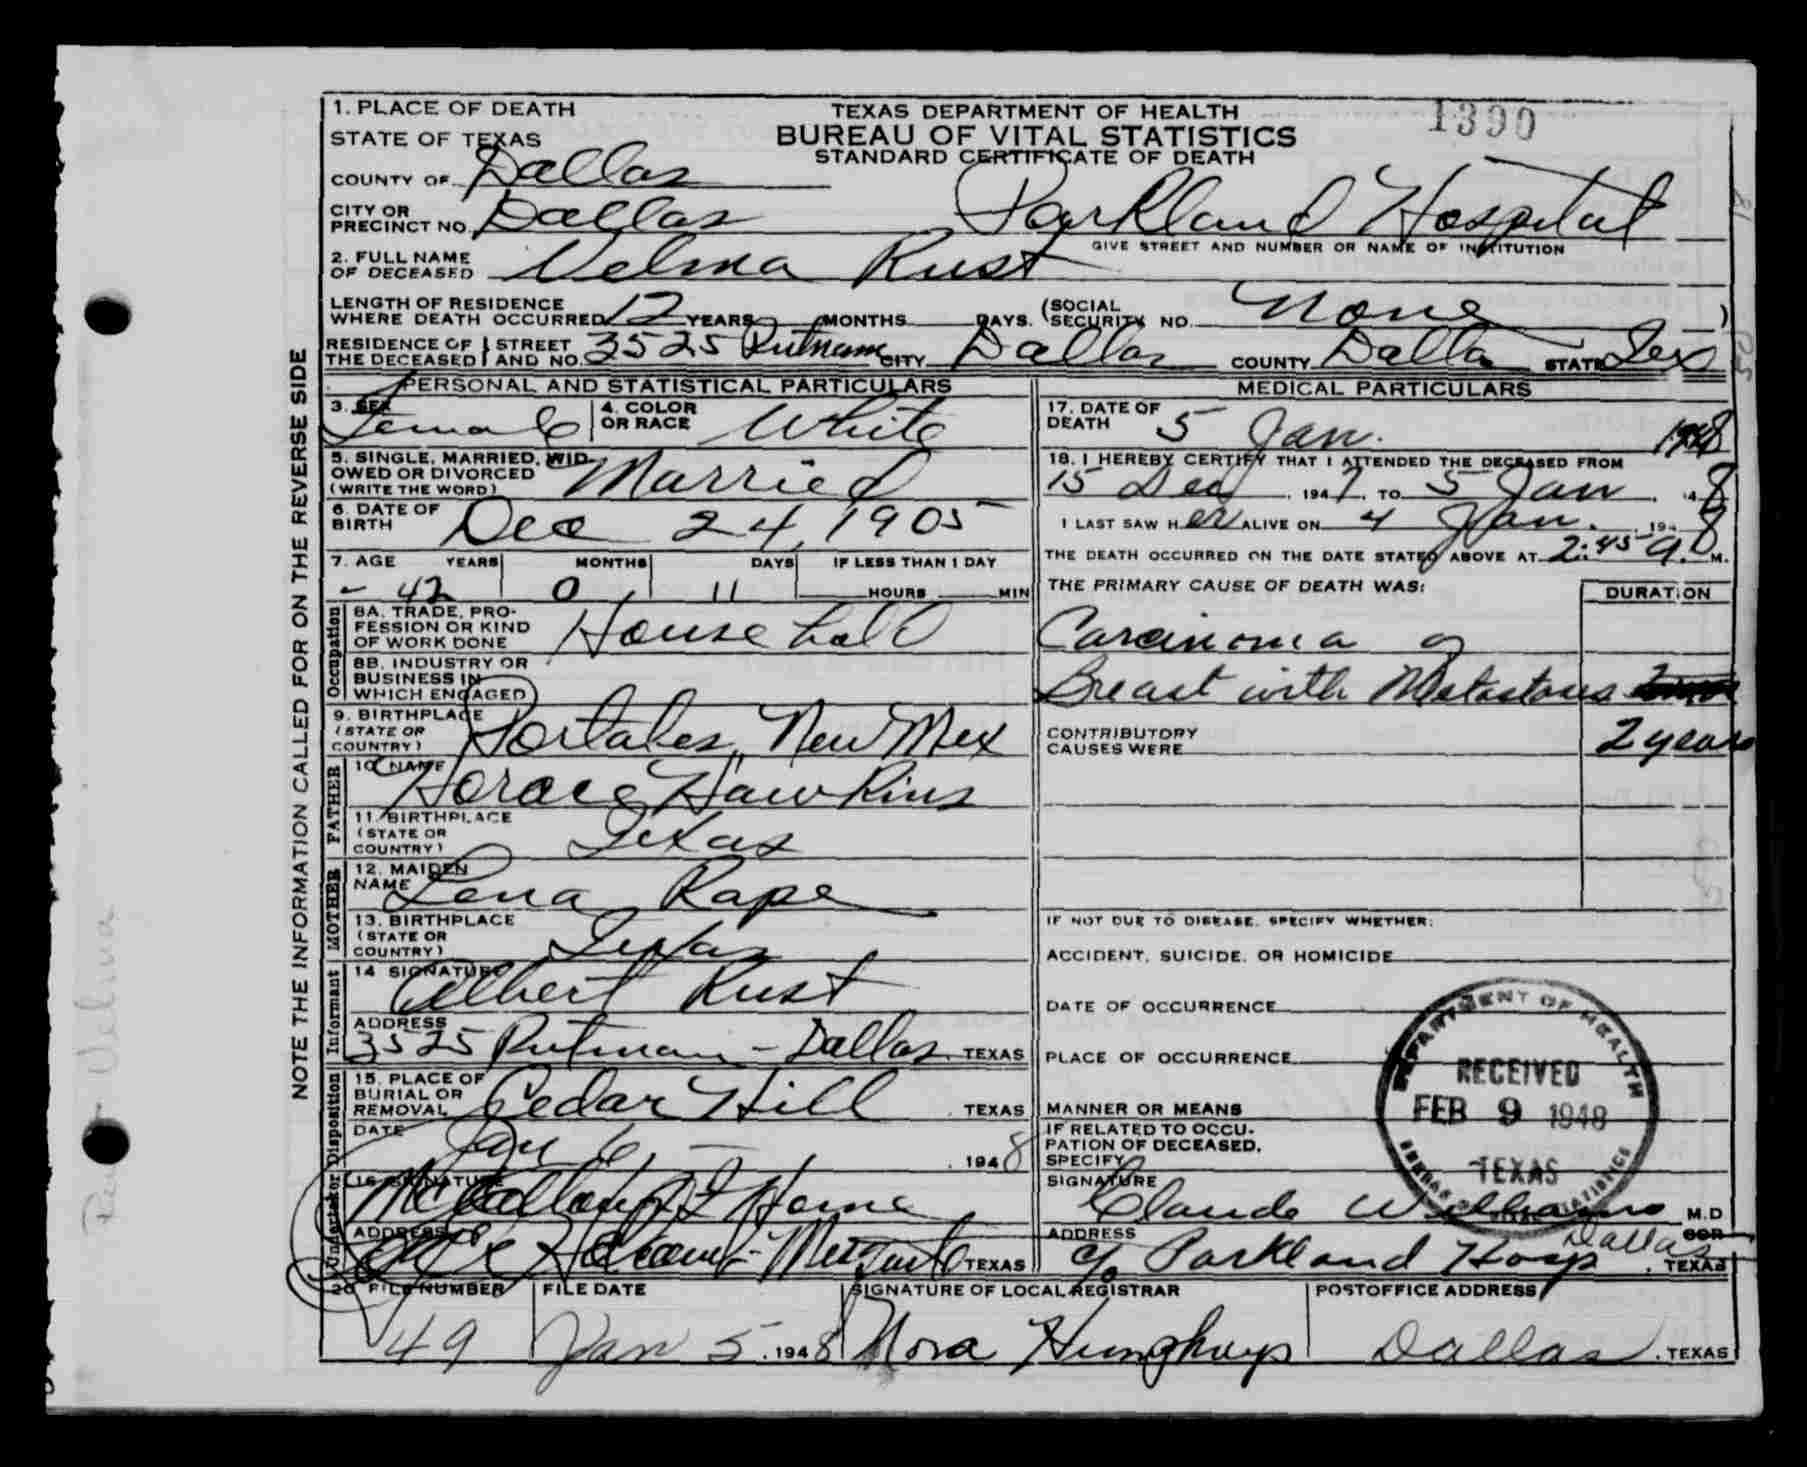 1. PLACE OF DEATH
STATE OF TEXAS
TEXAS DEPARTMENT OF HEALTH
BUREAU OF VITAL STATISTICS
STANDARD CERTIFICATE OF DEATH
1390
COUNTY OF Dallas
CITY OR PRECINCT NO. Dallas Parkland Hospital
GIVE STREET AND NUMBER OR NAME OF INSTITUTION
2. FULL NAME OF DECEASED Velma Rust
LENGTH OF RESIDENCE WHERE DEATH OCCURRED 12 YEARS MONTHS DAYS. (SOCIAL SECURITY NO. None )
RESIDENCE OF THE DECEASED } STREET AND NO. 3525 Putnam CITY Dallas COUNTY Dallas STATE Tex
NOTE THE INFORMATION CALLED FOR ON THE REVERSE SIDE
PERSONAL AND STATISTICAL PARTICULARS
3. SEX Female 4. COLOR OR RACE White
5. SINGLE, MARRIED, WIDOWED OR DIVORCED (WRITE THE WORD) Married
6. DATE OF BIRTH Dec 24, 1905
7. AGE YEARS MONTHS DAYS IF LESS THAN 1 DAY
42 0 11 HOURS MIN
Occupation
8A. TRADE, PROFESSION OR KIND OF WORK DONE House hold
8B. INDUSTRY OR BUSINESS IN WHICH ENGAGED
9. BIRTHPLACE (STATE OR COUNTRY) Portales, New Mex
FATHER
10. NAME Horace Hawkins
11. BIRTHPLACE (STATE OR COUNTRY) Texas
MOTHER
12. MAIDEN NAME Lena Rape
13. BIRTHPLACE (STATE OR COUNTRY) Texas
Informant
14 SIGNATURE Albert Rust
ADDRESS 3525 Putman - Dallas TEXAS
Disposition
15. PLACE OF BURIAL OR REMOVAL Cedar Hill TEXAS
DATE Jan 6 1948
Undertaker
16 SIGNATURE F Home
ADDRESS TEXAS
MEDICAL PARTICULARS
17. DATE OF DEATH 5 Jan. 1948
18. I HEREBY CERTIFY THAT I ATTENDED THE DECEASED FROM
15 Dec 1947, TO 5 Jan 48
I LAST SAW HER ALIVE ON 4 Jan. 1948
THE DEATH OCCURRED ON THE DATE STATED ABOVE AT 2:45 a. M.
THE PRIMARY CAUSE OF DEATH WAS: DURATION
Carcinoma of
Breast with Metastases
CONTRIBUTORY CAUSES WERE 2 years
IF NOT DUE TO DISEASE, SPECIFY WHETHER:
ACCIDENT, SUICIDE, OR HOMICIDE
DATE OF OCCURRENCE
PLACE OF OCCURRENCE
MANNER OR MEANS
IF RELATED TO OCCUPATION OF DECEASED, SPECIFY
DEPARTMENT OF HEALTH
RECEIVED
FEB 9 1948
TEXAS
BUREAU OF VITAL STATISTICS
SIGNATURE Claude Williams M.D
ADDRESS c/o Parkland Hosp Dallas TEXAS
20 FILE NUMBER FILE DATE SIGNATURE OF LOCAL REGISTRAR POSTOFFICE ADDRESS
49 Jan 5, 1948 Nora Humphreys Dallas, TEXAS
Rust Velma